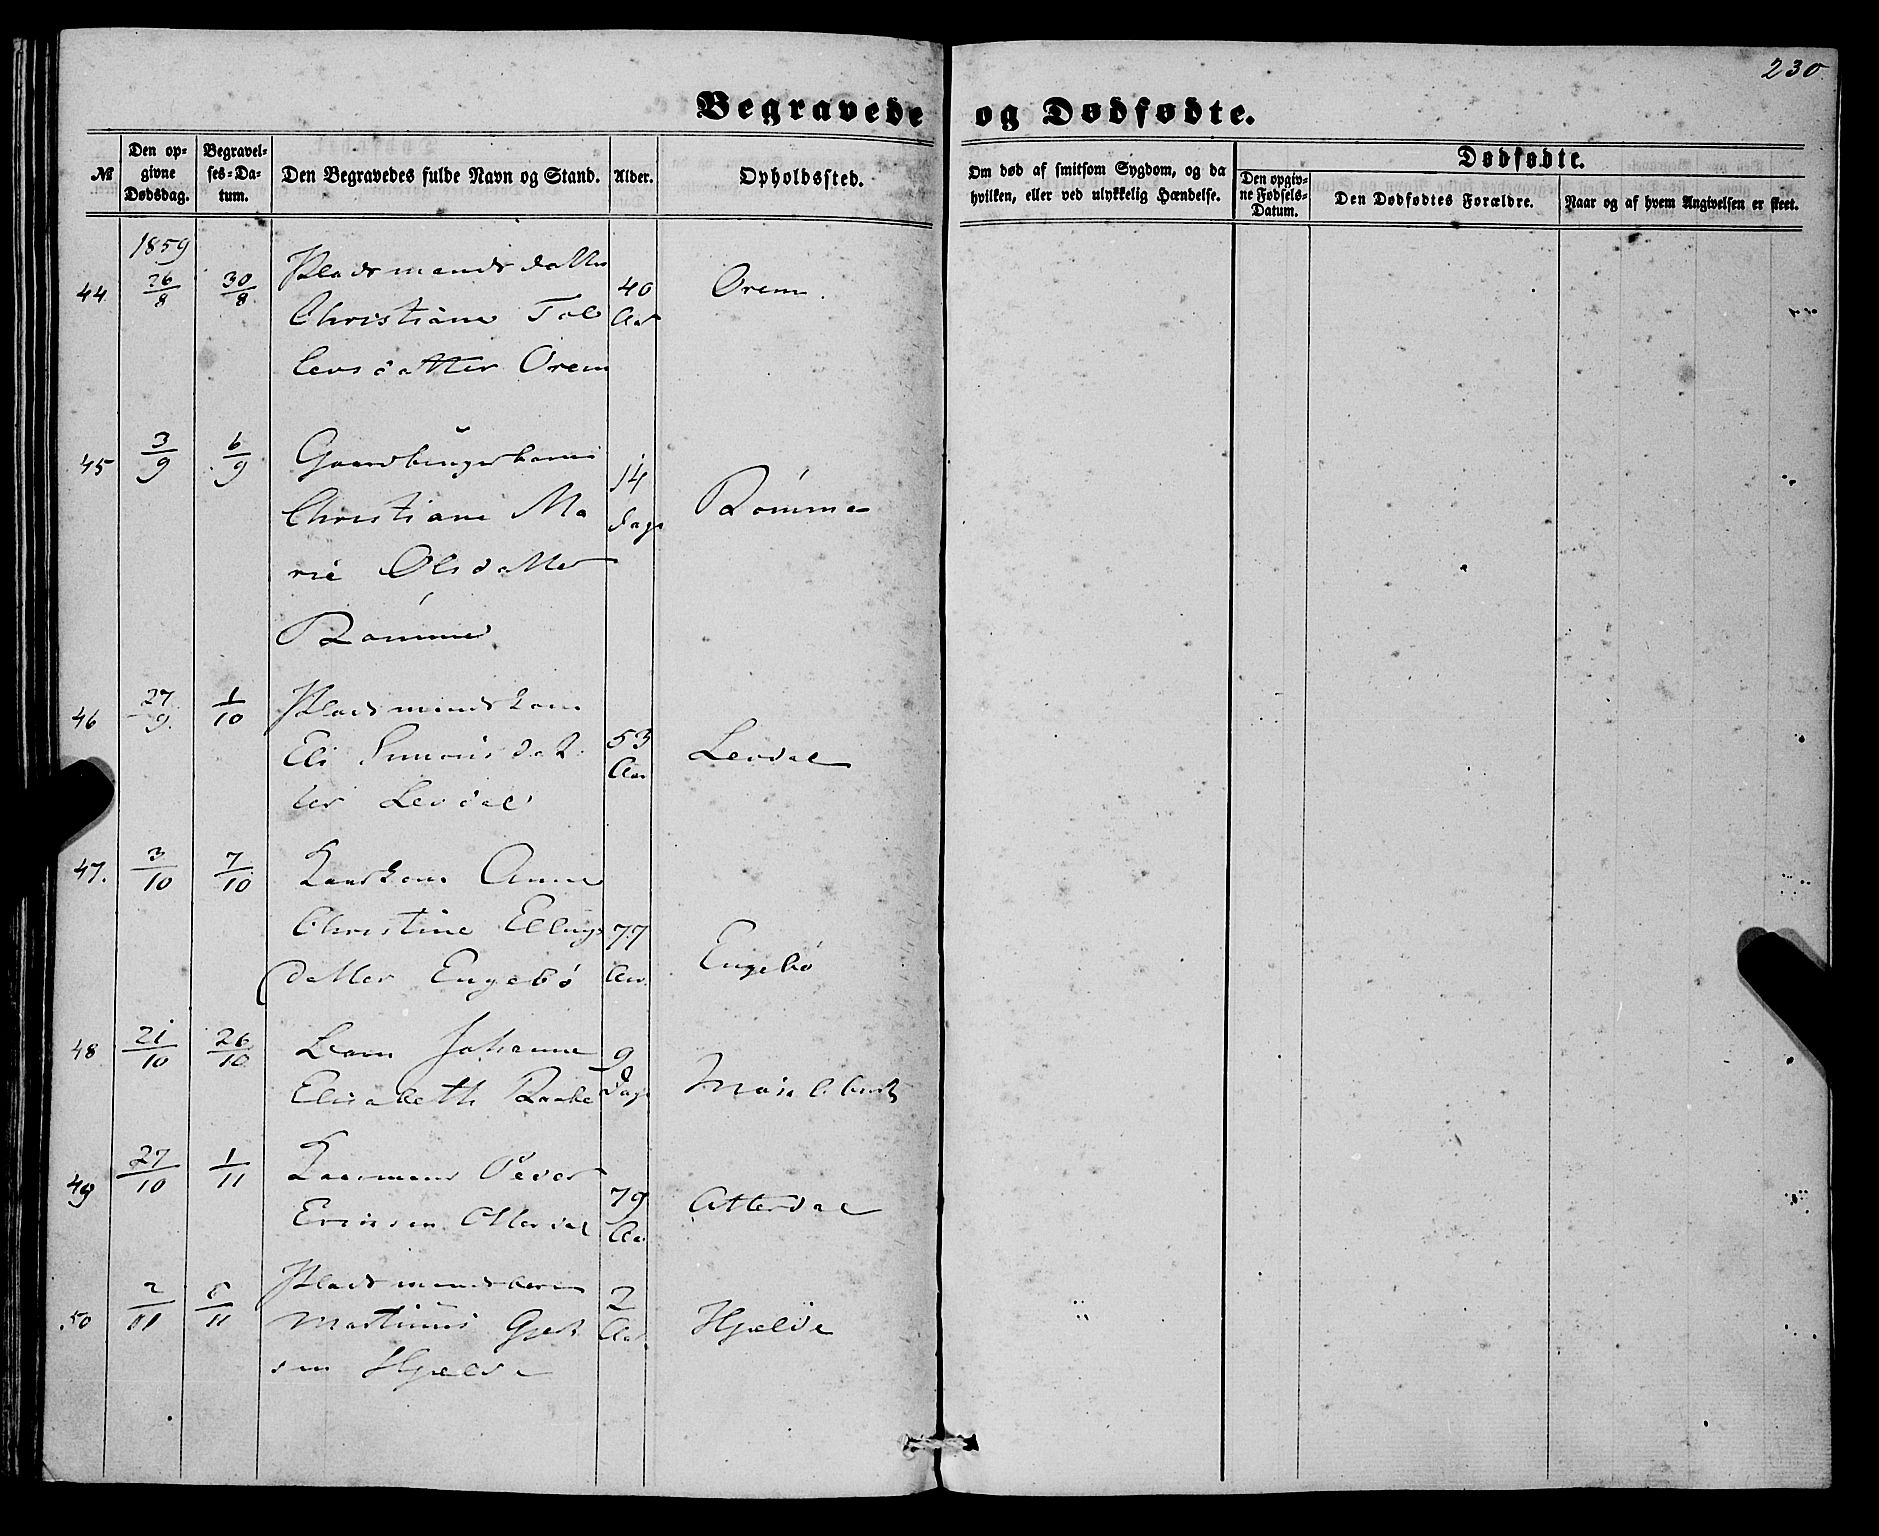 230
Begravede og Dødfødte.
№ Den opgivne Dødsdag. Begravelses-Datum. Den Begravedes fulde Navn og Stand. Alder. Opholdssted. Om død af smitsom Sygdom, og da hvilken, eller ved ulykkelig Hændelse. Dødfødte.
Den opgivne Fødsels-Datum. Den Dødfødtes Forældre. Naar og af hvem Angivelsen er skeet.
1859
44 26/8 30/8 Pladsmandsdatter 40 Orem.
Christiane Tol Aar
levsdatter Orem
45 3/9 6/9 14
Christiane Ma Dage Römme
rie Olsdatter
Römme
46 27/9. 1/10 Pladsmandskone
Eli Simonsdat 53 Levdal
ter Levdal Aar
47. 3/10 7/10 Kaarkone Anne
Christine Ellings 77
datter Engebö Aar. Engebö
48 21/10 26/10 Barn Johanne 9
Elisabeth Dage
49 27/10 1/11 Kaarmand Peder 79 Atterdal
Atterdal Aar
50 2/11 Pladsmandsbarn 2
Martinus Aar Hjelde
sen Hjelde